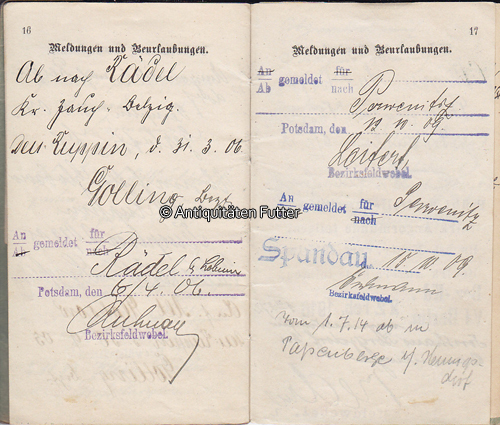 16
Meldungen und Beurlaubungen.
Ab nach Rädel
Kr. Zauch-Belzig.
Neu Ruppin, d. 31.3.06
Golling
An Ab gemeldet für nach
Rädel b/ Lehnin
Potsdam, den 6/4. 06.
Bezirksfeldwebel.
17
Meldungen und Beurlaubungen.
An Ab gemeldet für nach
Perwenitz
Potsdam, den 09.
Bezirksfeldwebel.
An gemeldet für nach Perwenitz
Spandau, 10.11.09.
Bezirksfeldwebel.
vom 1.7.14 ab in
Papenberge
© Antiquitäten Futter